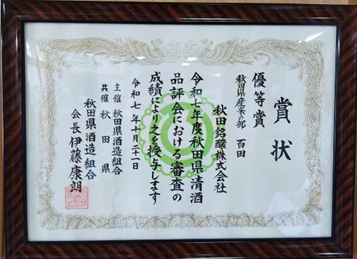 賞状
優等賞
秋田県産米の部 百田
秋田銘醸株式会社
令和七年度秋田県清酒
品評会における審査の
成績によりこれを授与します
令和七年十月二十一日
主催 秋田県酒造組合
共催 秋田県
秋田県酒造組合
会長 伊藤康朗